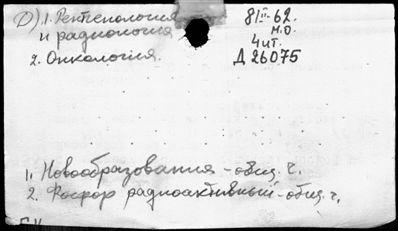 Д). 1. Рентгенология
и радиология
2. Онкология.
8/II-62.
М.О.
4чт.
Д 26075
1. Новообразования - общ. ч.
2. Фосфор радиоактивный - общ. ч.